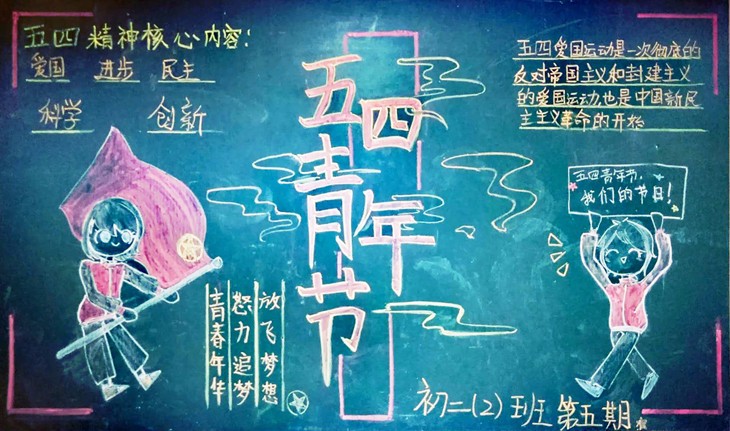 五四精神核心内容:
爱国 进步 民主
科学 创新
五四青年节
五四爱国运动是一次彻底的
反对帝国主义和封建主义
的爱国运动,也是中国新民
主主义革命的开始
五四青年节,
我们的节日!
放飞梦想
怒力追梦
青春年华
初二(2)班 第五期